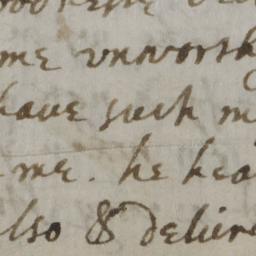 me vnworth
haue such m
me. he hea
lso & deliue